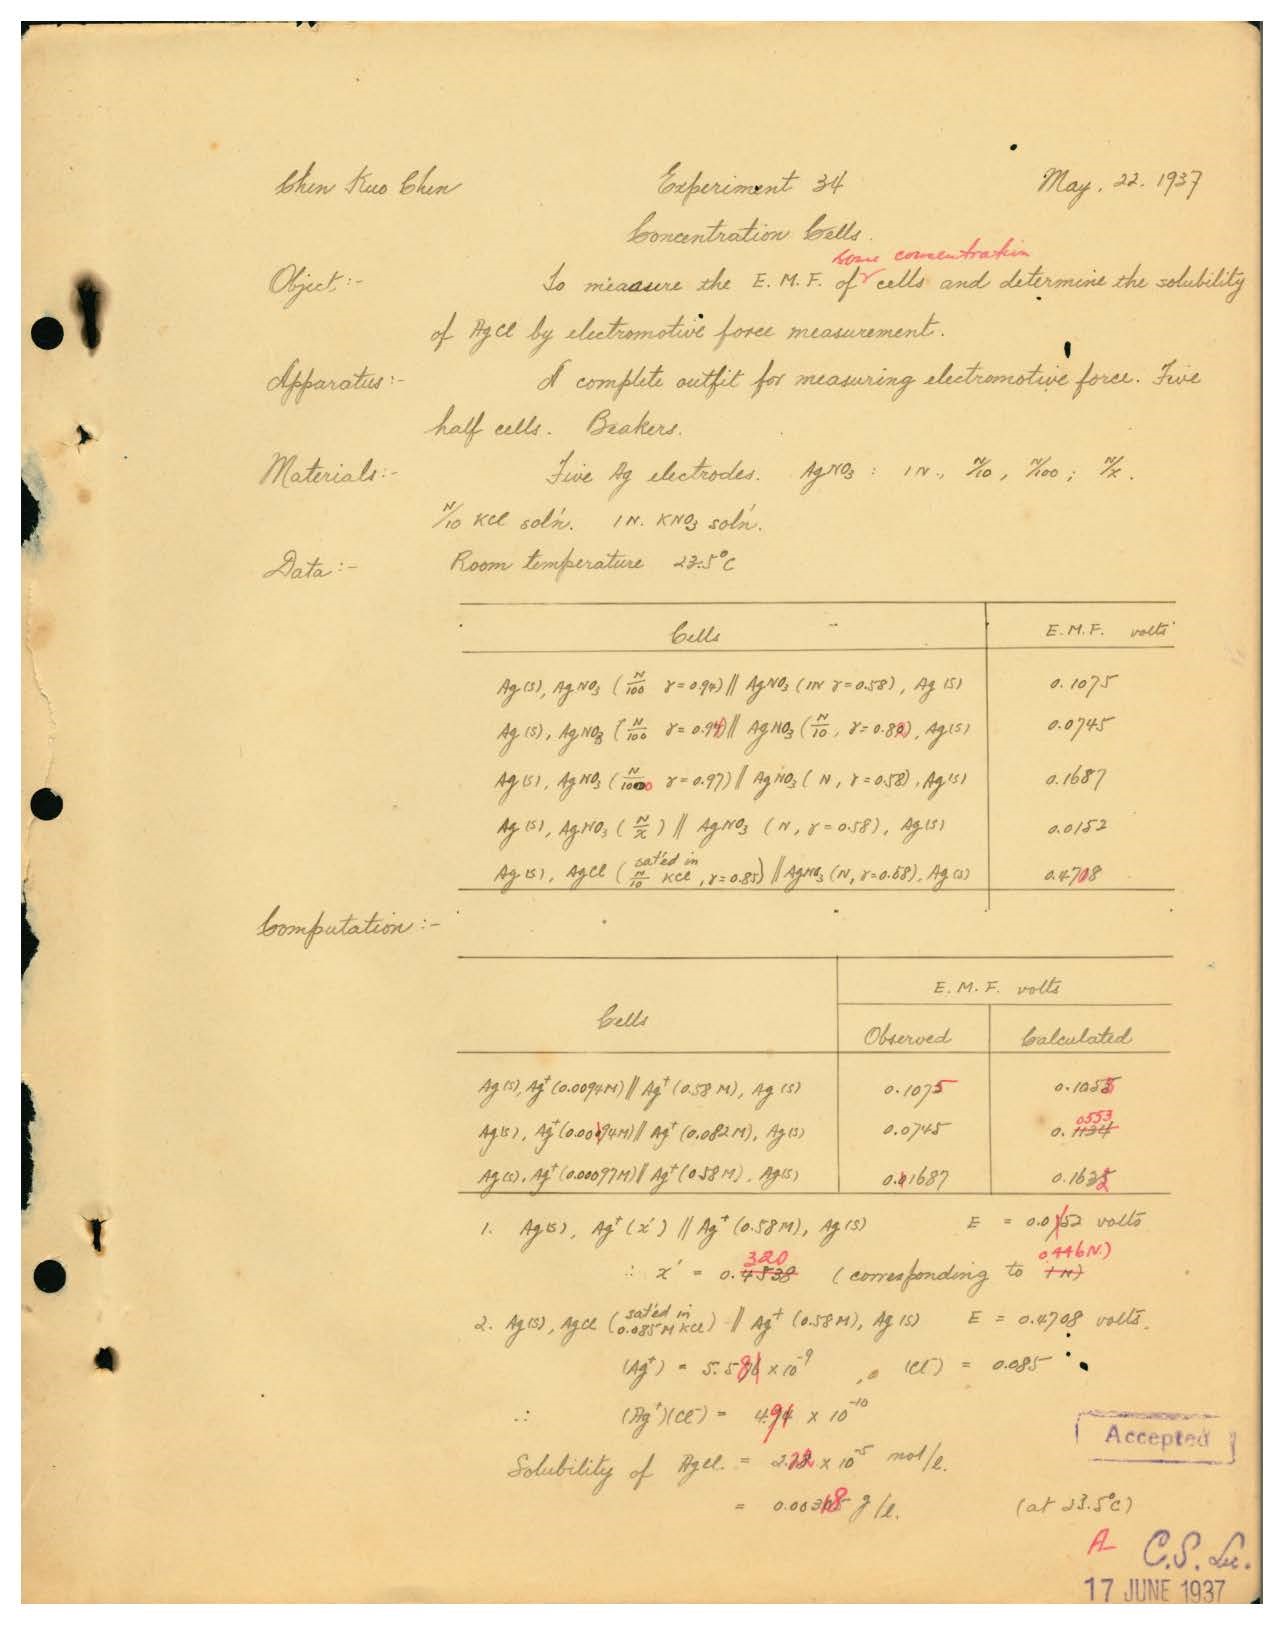 Chen Kuo Chen Experiment 34 May. 22. 1937
Concentration Cells.
some concentration
Object:- To measure the E.M.F. of cells and determine the solubility
of AgCl by electromotive force measurement.
Apparatus:- A complete outfit for measuring electromotive force. Five
half cells. Beakers.
Materials:- Five Ag electrodes. AgNO3 : 1N., N/10, N/100; N/x.
N/10 KCl sol'n. 1N. KNO3 sol'n.
Data:- Room temperature 23.5°C
Cells E.M.F. volts
Ag(s), AgNO3 (N/100 γ=0.94) // AgNO3 (1N γ=0.58), Ag(s) 0.1075
Ag(s), AgNO3 (N/100 γ=0.94) // AgNO3 (N/10, γ=0.82), Ag(s) 0.0745
Ag(s), AgNO3 (N/1000 γ=0.97) // AgNO3 (N, γ=0.58), Ag(s) 0.1687
Ag(s), AgNO3 (N/x) // AgNO3 (N, γ=0.58), Ag(s) 0.0152
Ag(s), AgCl (sat'ed in N/10 KCl, γ=0.85) // AgNO3 (N, γ=0.58), Ag(s) 0.4708
Computation:-
E.M.F. volts
Cells
Observed Calculated
Ag(s), Ag+ (0.0094M) // Ag+ (0.58 M), Ag(s) 0.1075
0553
Ag(s), Ag+ (0.0094M) // Ag+ (0.082M), Ag(s) 0.0745 0.1134
Ag(s), Ag+ (0.00097M) // Ag+ (0.58M), Ag(s) 0.1687 0.1632
1. Ag(s), Ag+ (x') // Ag+ (0.58M), Ag(s) E = 0.0152 volts
320 0.446N.)
∴ x' = 0.4538 (corresponding to 1N)
2. Ag(s), AgCl (sat'ed in 0.085M KCl) // Ag+ (0.58M), Ag(s) E = 0.4708 volts.
(Ag+) = × 10-9, (Cl-) = 0.085
∴ (Ag+)(Cl-) = × 10-10
Solubility of AgCl. = × 10-5 mol/l.
= g/l. (at 23.5°C)
Accepted
A C.S. Lu.
17 JUNE 1937